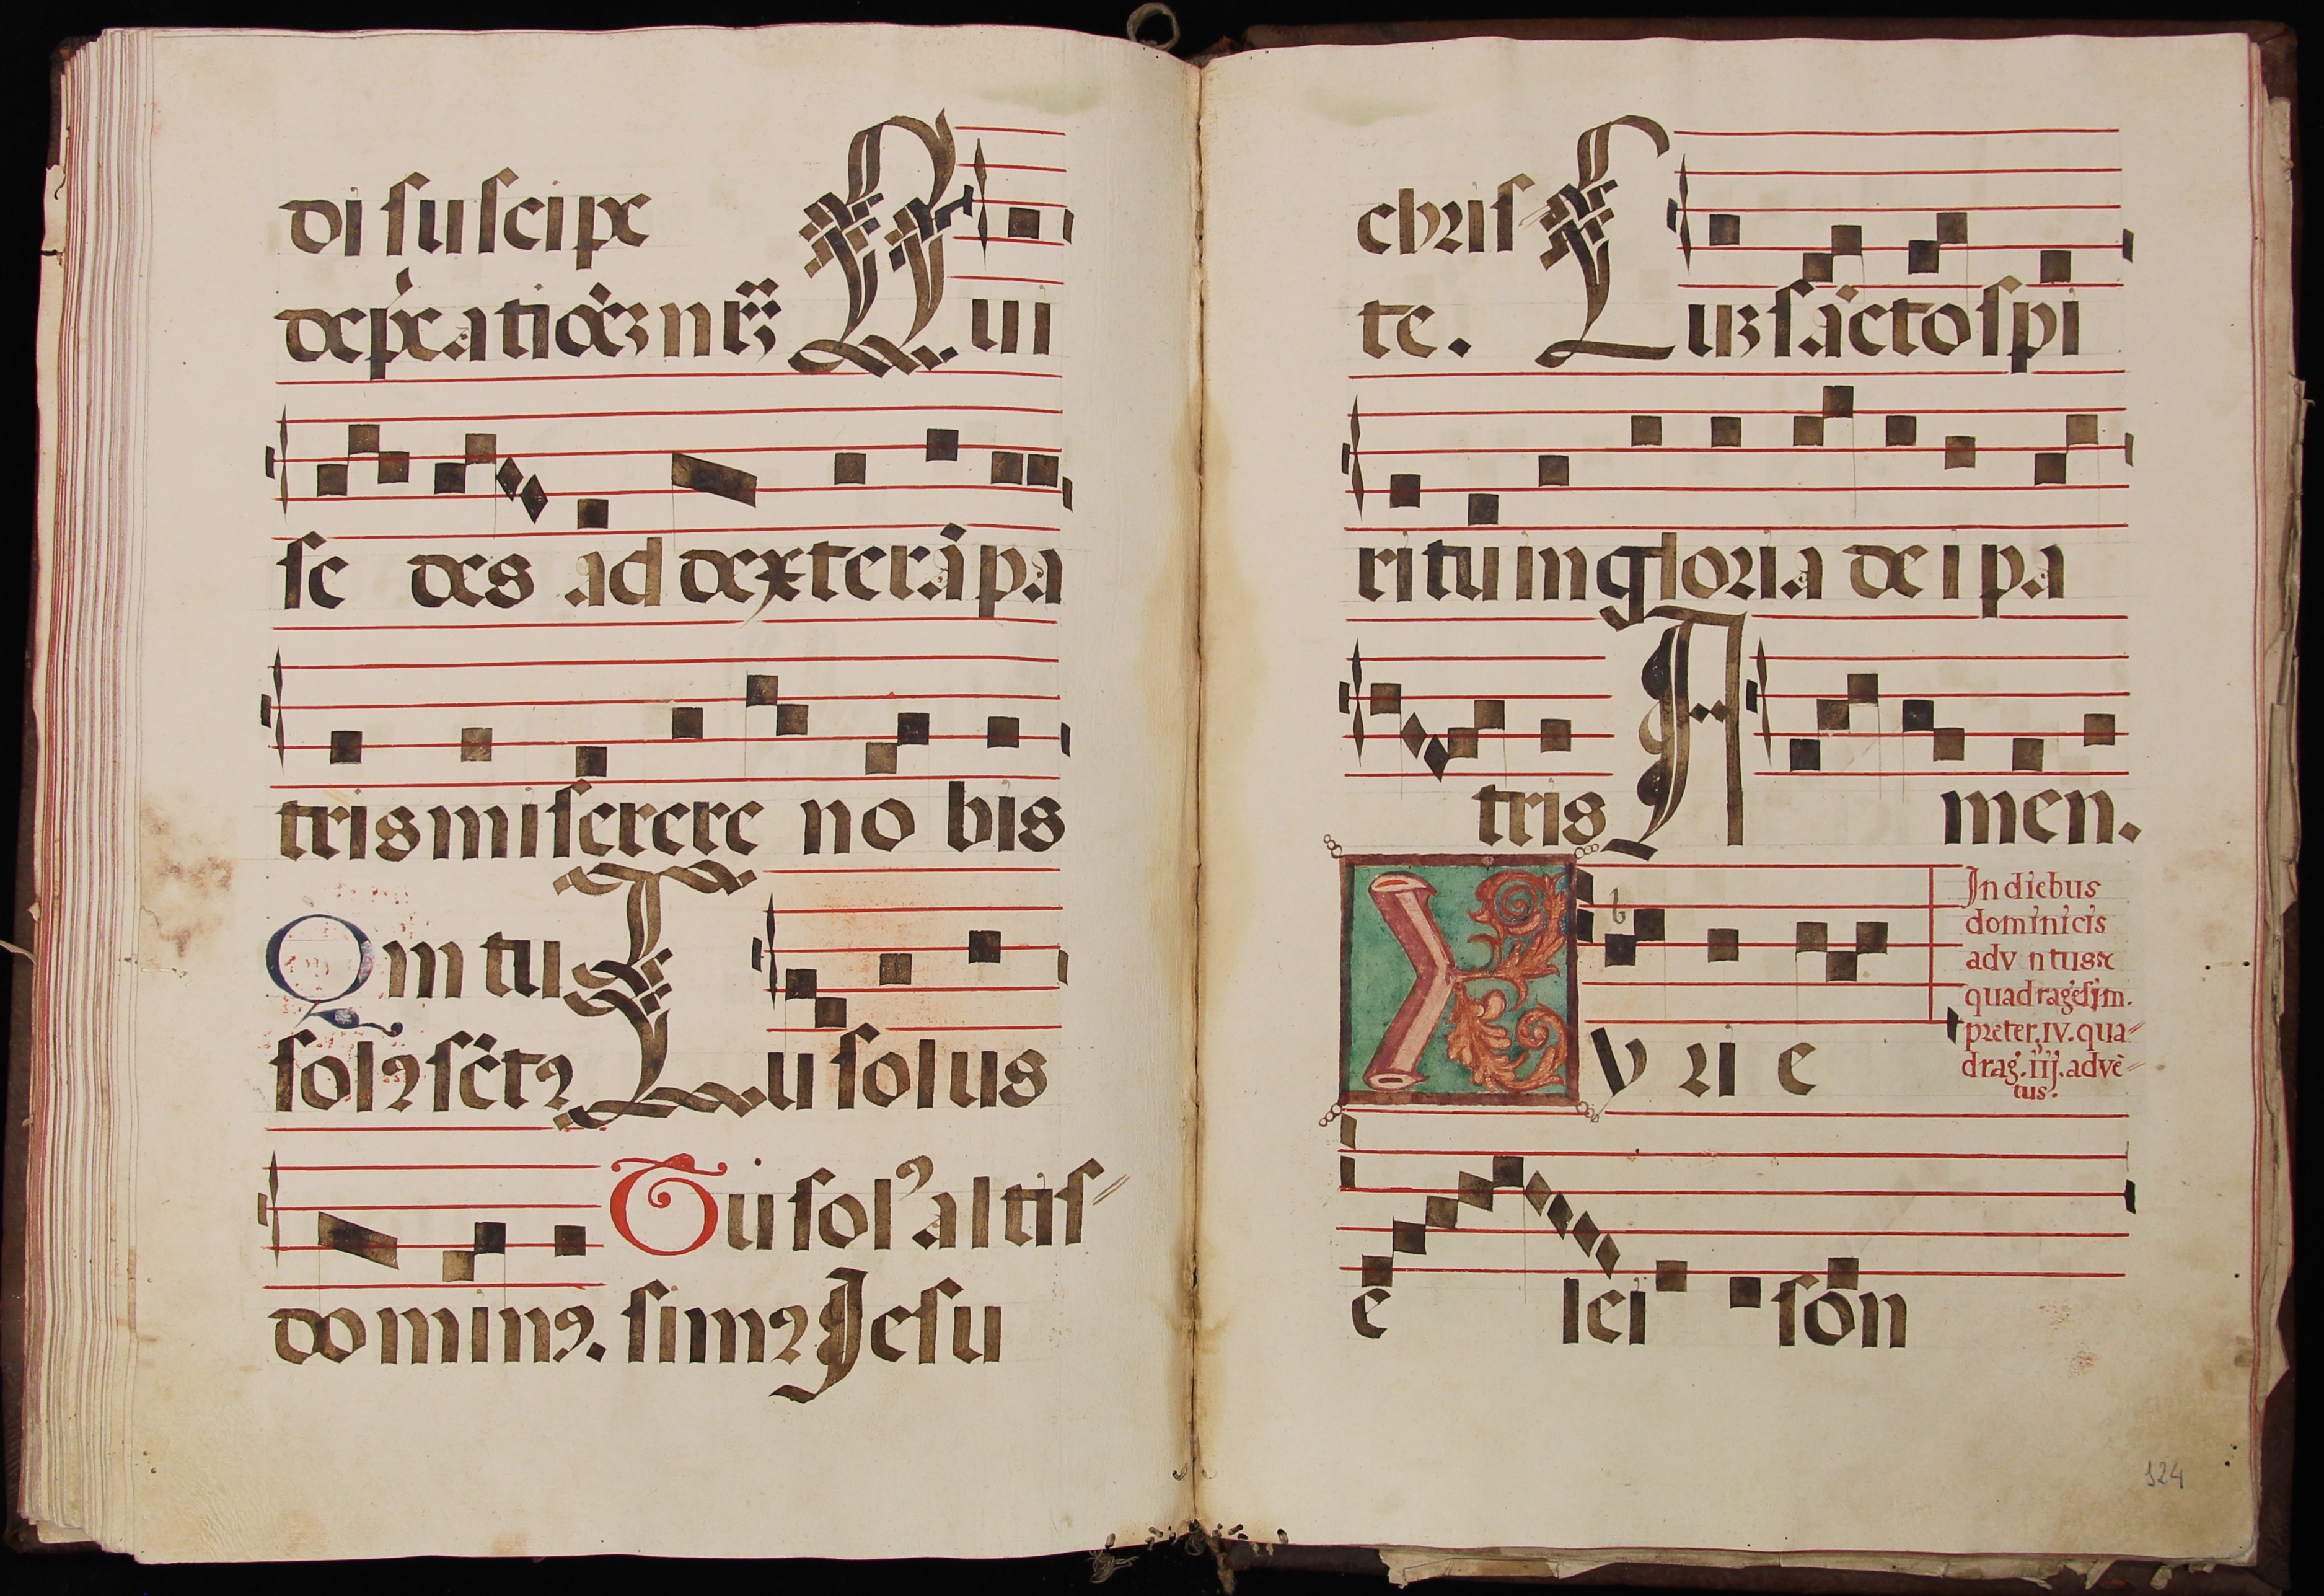 di suscipe
depcationẽ nrã Qui
se des ad dexterã pa
tris miserere no bis
Qm tu
solꝯ sctꝯ Tu solus
Tu solꝰ altis⸗
dominꝯ. simꝯ Jesu
chris
te. Cuʒ sãcto spi
ritu in gloria dei pa
tris Amen.
Kyrie
In diebus
dominicis
adv ntus et
quadragesim.
preter. IV. qua⸗
drag. iij. advẽ⸗
tus.
e lei son
124